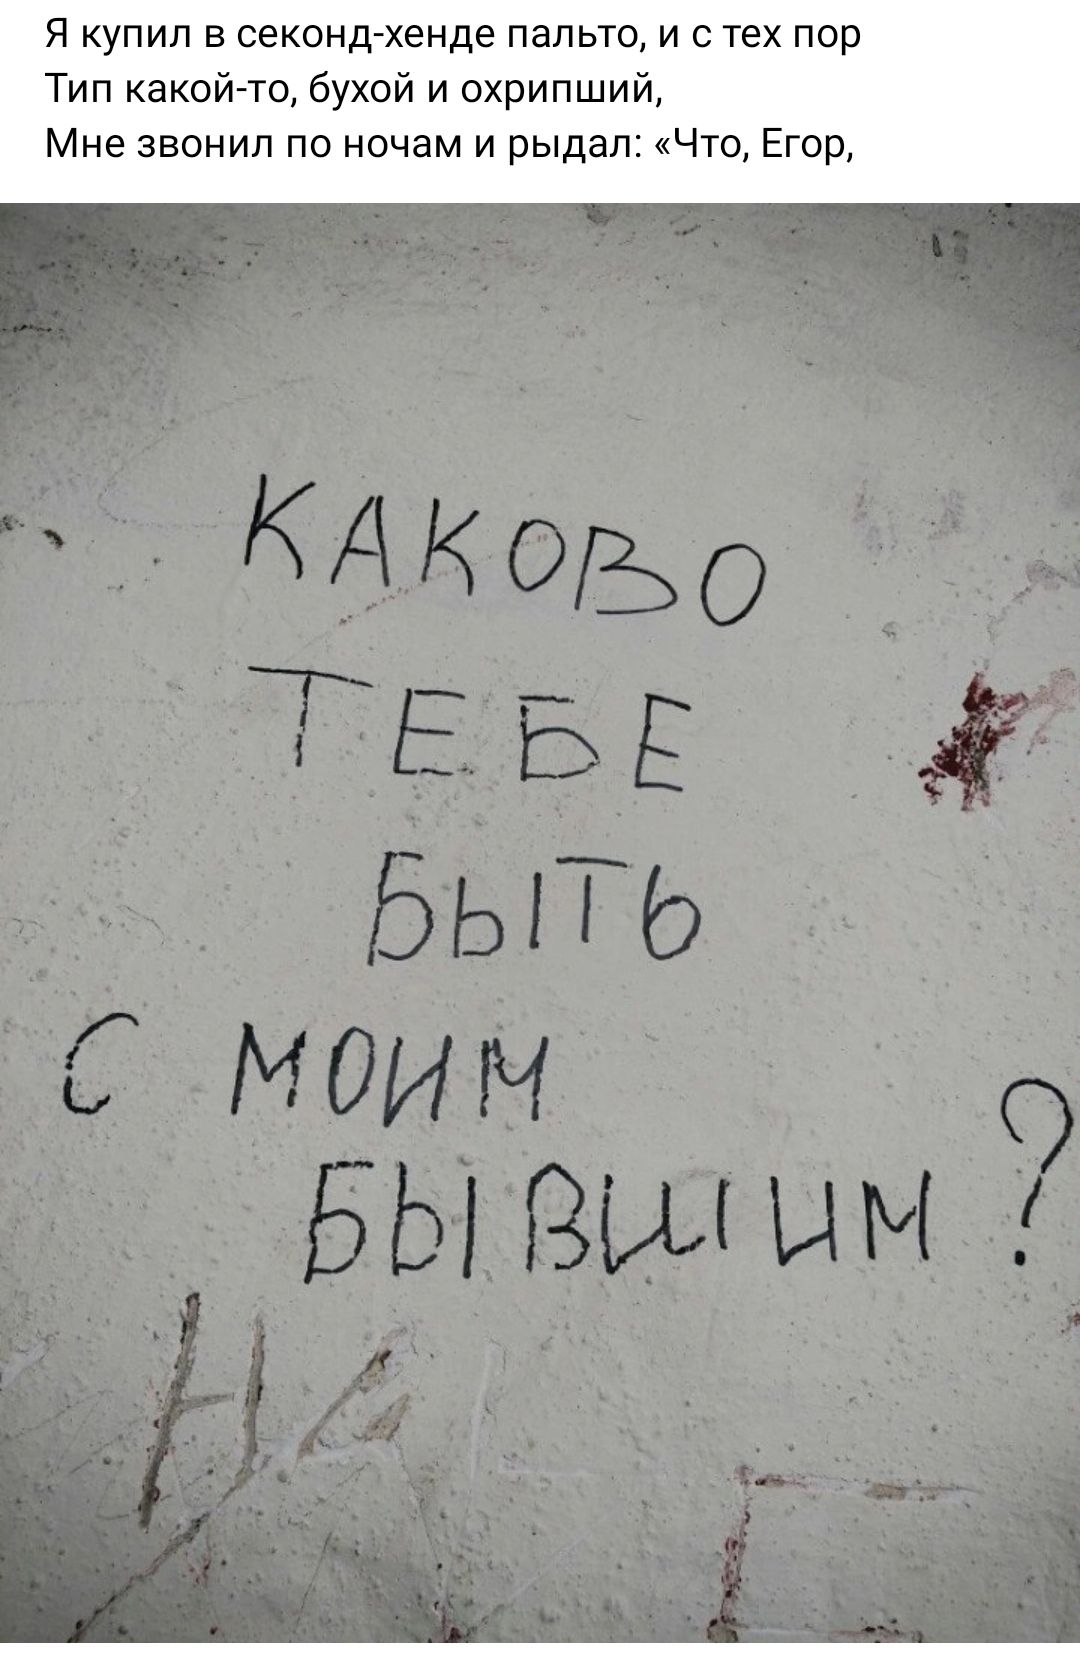 Я купил в секонд-хенде пальто, и с тех пор
Тип какой-то, бухой и охрипший,
Мне звонил по ночам и рыдал: «Что, Егор,
КАКОВО
ТЕБЕ
БЫТЬ
С МОИМ
БЫВШИМ?